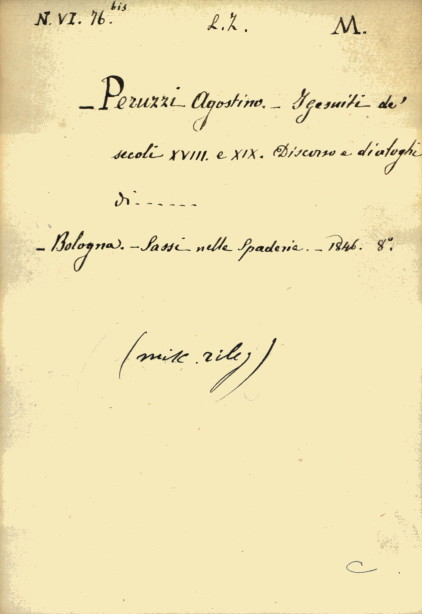 N. VI. 76. bis L. Z. M.
– Peruzzi Agostino. – I gesuiti de'
secoli XVIII. e XIX. Discorso e dialoghi
di ------
– Bologna. – Sassi nelle Spaderie. – 1846. 8°.
(misc. rileg)
C